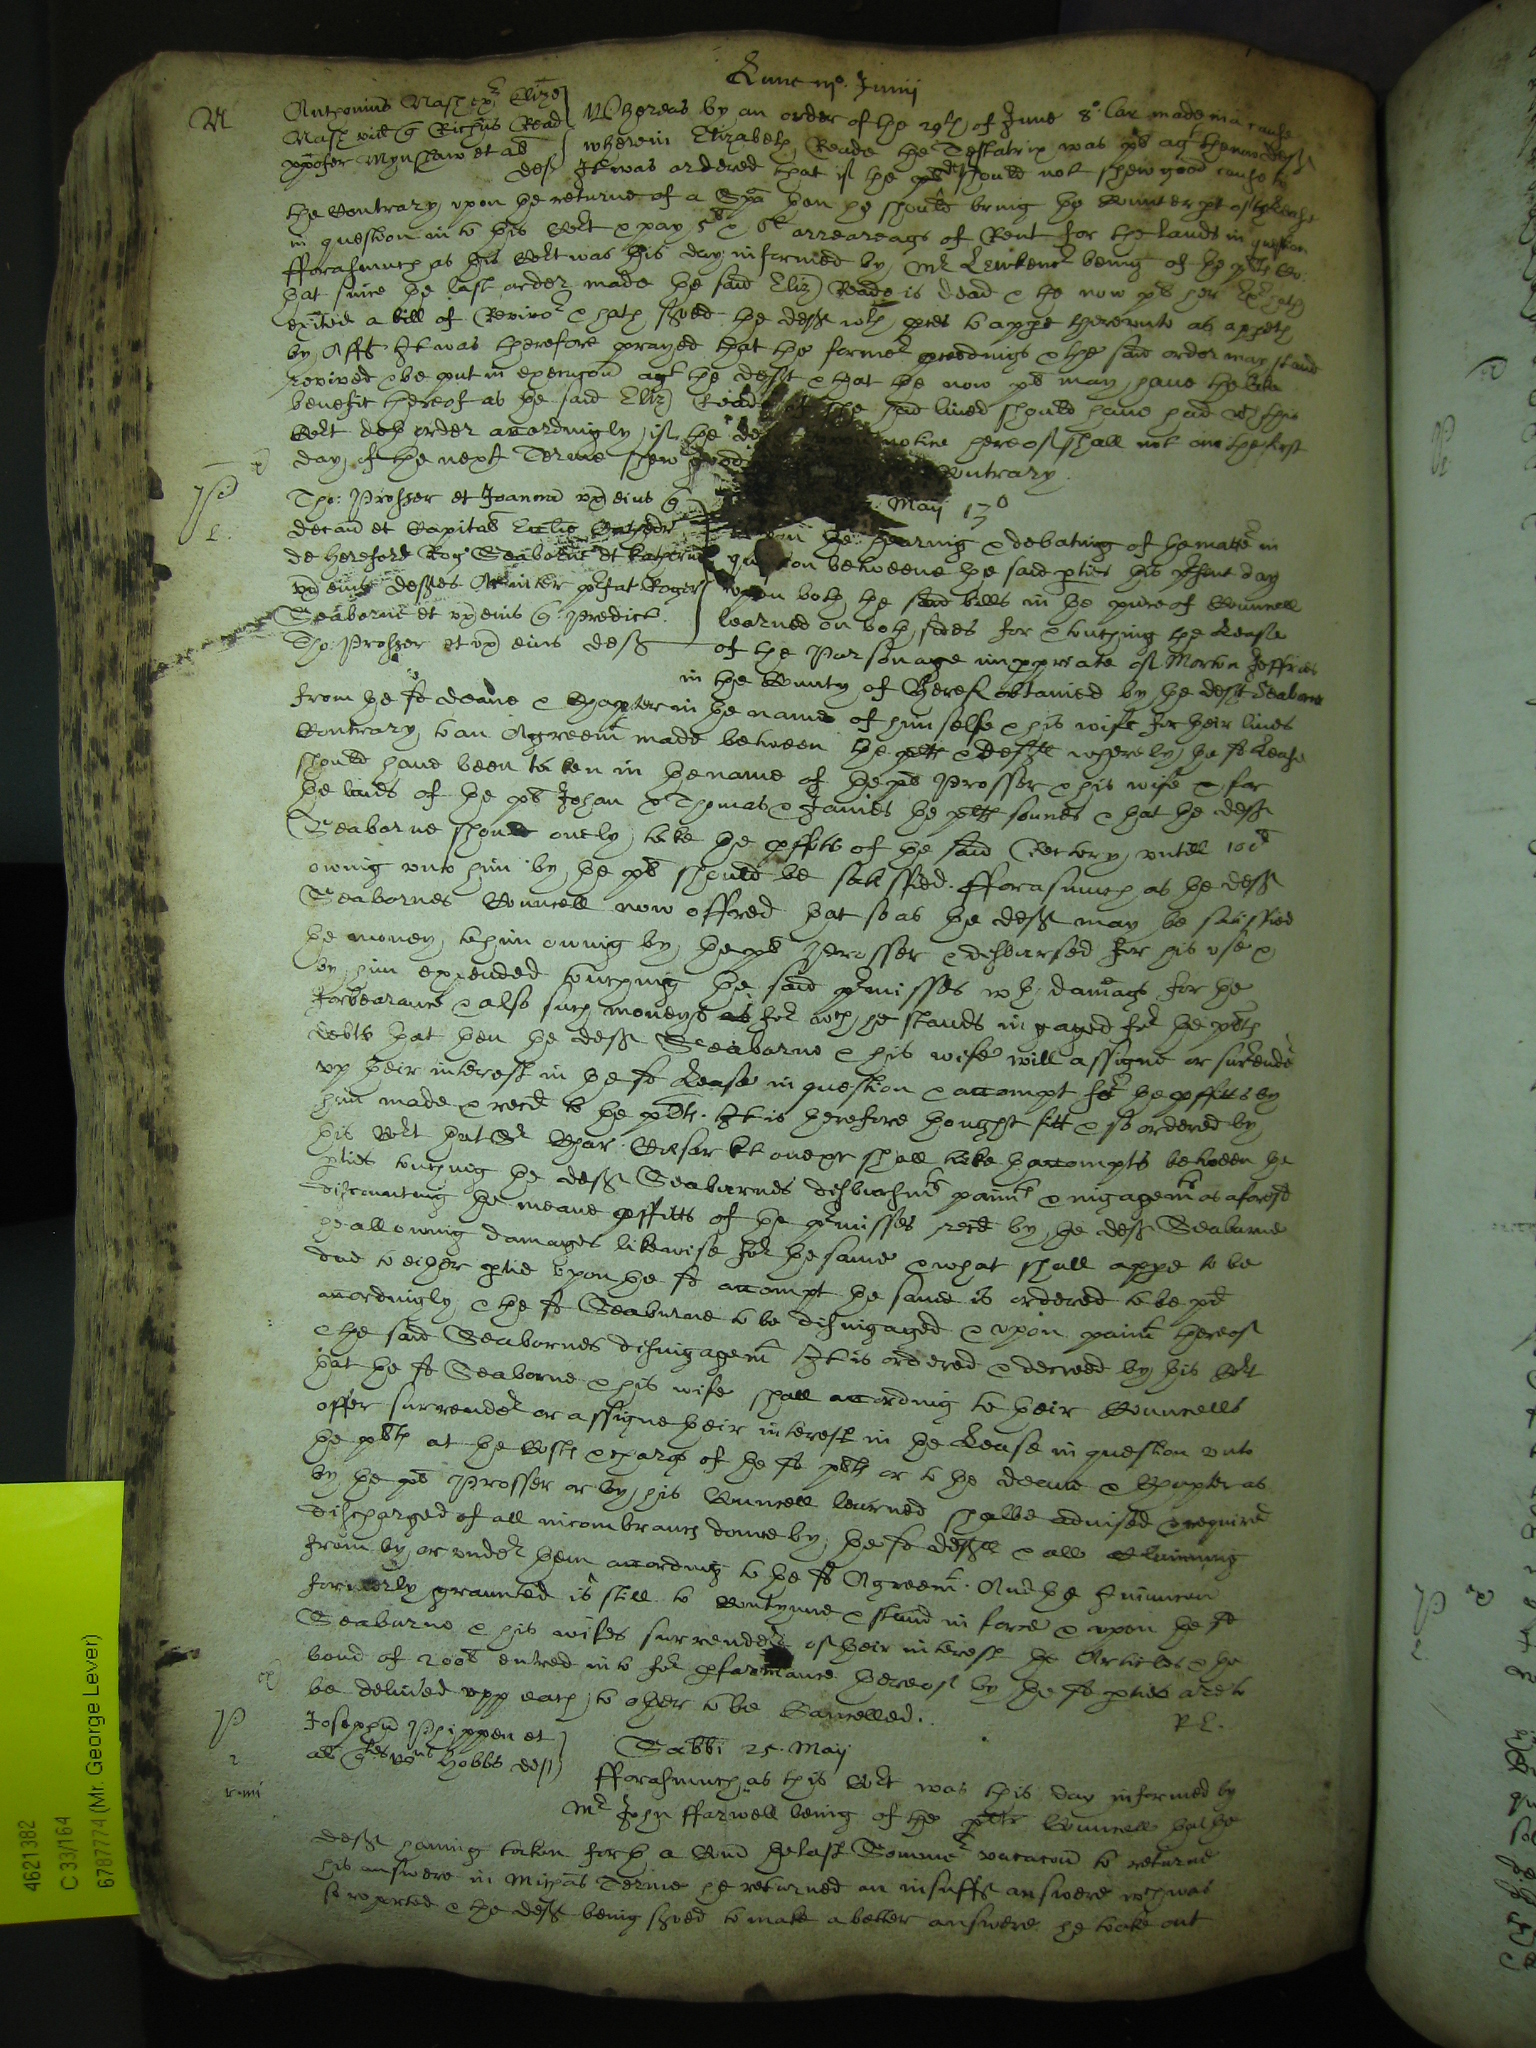 Lune iijo. Junij
M
Antonius Nash exr Elize
Nash vid q Richus Read
xpofer Mynshaw et al
def
Whereas by an order of the 29th of June 8o. Car made in a cause
wherein Elizabeth Reade the Testatrix was pl agt the now deft
It was ordered that if the deft should not shew good cause to
the Contrary vpon the returne of a Spa hen he should bring the Counterpt of the Lease
in question in to this Cort & pay arrearags of Rent for the lands in question
fforasmuch as this Cort was this day informed by Mr Lewkenr being of the plts Co
that since the last order made the said Eliz Reade is dead & the now pl her Exr hath
exited a bill of Revivor & hath served the deft wth pces to appe therevnto as appeth
by Afft It was therefore prayed that the former pceedings & the said order may stand
revived & be put in execucon agt the deft & that the now pl may haue the like
benefit thereof as the said Eliz Reade if she had lived should haue had wch this
Cort doth order accordingly if the def notice hereof shall not on the first
day of the next Terme shew good Contrary
P
Tho: Prosser et Joanna vx eius q
Decan et Capital Ecclie Cathedr
de Hereford Rog Seaborne et Katherin
vx eius defts Ac inter pfat Roger
Seaborne et vx eius q predict
Tho: Prosser et vx eius deft
May 13o
the hearing & debating of the matter in
question betweene the said pties this psent day
vpon both the said bills in the psnce of Councell
learned on both sides for & touching the Lease
of the Parsonage impropriate of Morton Jeffries
in the County of Heref obtained by the deft Seaborne
from the sd deane & Chapter in the name of himselfe & his wife for their liues
Contrary to an Agreemt made between the plts & defts whereby the sd Lease
should haue been taken in the name of the pl Prosser & his wife & for
the liues of the pl Johan & Thomas & James the plts sonnes & that the deft
Seaborne should onely take the pffitts of the said Rectory vntill 100l
owing vnto him by the pl should be satisfied. fforasmuch as the deft
Seabornes Councell now offred that so as the deft may be satisfied
the money to him owing by the pl Prosser & disbursed for his vse &
by him expended touching the said pmisses wth damags for the
forbearance & also such moneys as for wch he stands ingaged for the plts
debts that then the deft Seaborne & his wife will assigne or surrender
vp their interest in the sd Lease in question & accompt for the pffitts by
him made & recd to the plts. It is therefore thought fitt & so ordered by
this Cort that Sr Char. Cæsar kt one &c shall take thaccompts between the
pties touching the deft Seabornes disbursmts paimts & ingagemts as aforesd
discounting the meane pffitts of the pmisses recd by the deft Seaborne
he allowing damages likewise for the same & what shall appe to be
due to either ptie vpon the sd accompt the same is ordered to be pd
accordingly & the sd Seaborne to be disingaged & vpon paimt thereof
& the said Seabornes disingagemt It is ordered & decreed by this Cort
that the sd Seaborne & his wife shall according to their Councells
offer surrender or assigne their interest in the Lease in question vnto
the plts at the Costs & charge of the sd plts or to the deane & Chapter as
by the pl Prosser or by his Councell learned shalbe advised & required
discharged of all incombrancs donne by the sd defts & all claiming
from by or vnder them according to the sd Agreemt. And the Iniuncon
formerly graunted is still to Contynue & stand in force & vpon the sd
Seaborne & his wifes surrender of their interest the Articles & the
bond of 200l entred into for pformance thereof by the sd pties are to
be deliuered vpp each to other to be Cancelled.
R L.
P
2
Joseph Phippen et
al qtes Hobbs deft
Sabbi 25. May
fforasmuch as this Cort was this day informed by
Mr John ffarwell being of the plts Councell that the
deft hauing taken forth a the last Sommer vacacon to returne
his answere in Michas Terme he returned an insuffit answere wch was
so reported & the deft being served to make a better answere he tooke out
4621382
C 33/164
6787774 (Mr. George Lever)